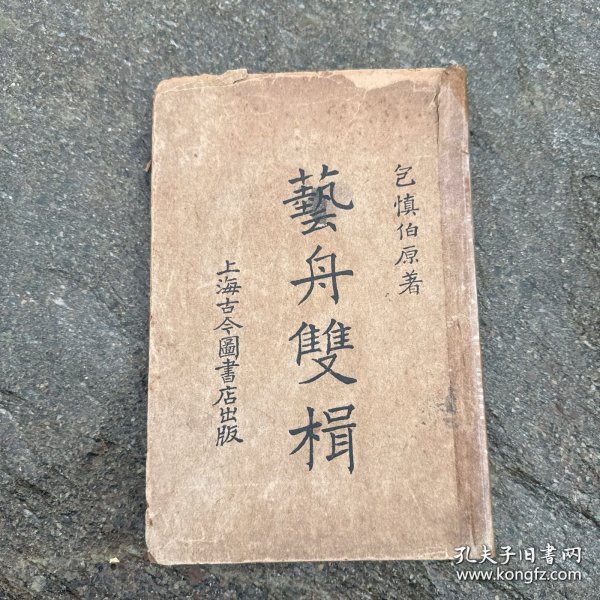 包慎伯原著
藝舟雙楫
上海古今圖書店出版
孔夫子旧書网
www.kongfz.com